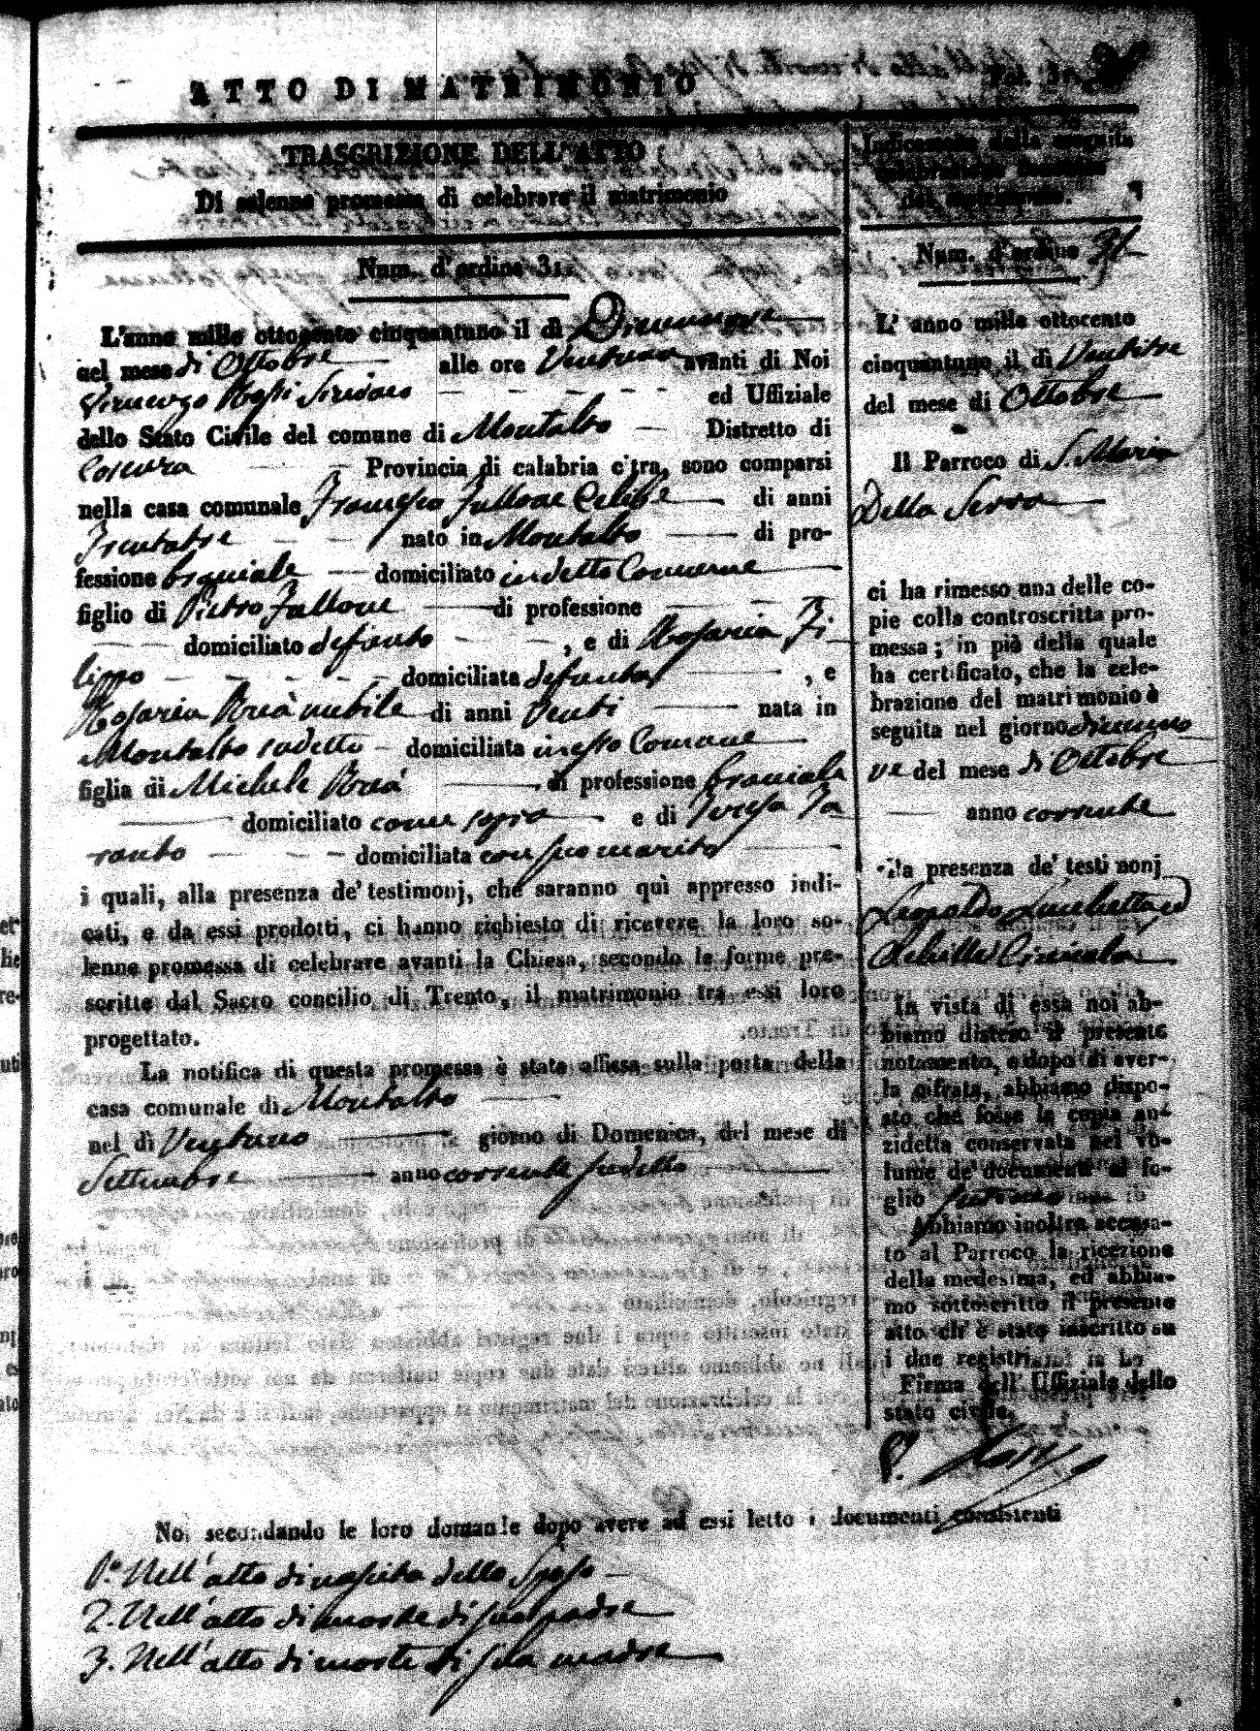 ATTO DI MATRIMONIO
TRASCRIZIONE DELL'ATTO
Di solenne promessa di celebrare il matrimonio
Num. d'ordine 31.
L'anno mille ottocento cinquantuno il dì Diciannove
nel mese di Ottobre alle ore Ventuno avanti di Noi
Rossi Sindaco ed Uffiziale
dello Stato Civile del comune di Montalto Distretto di
Cosenza Provincia di calabria citra, sono comparsi
nella casa comunale Francesco Fallone Celibe di anni
Trentatre nato in Montalto di pro-
fessione braciale domiciliato in detto Comune
figlio di Pietro Fallone di professione
domiciliato defunto , e di Rosaria Fi
lippo domiciliata defunta , e
Rosaria Breà nubile di anni Venti nata in
Montalto sudetto domiciliata in esso Comune
figlia di Michele Breà di professione braciale
domiciliato come sopra e di Teresa Ta
ranto domiciliata con suo marito
i quali, alla presenza de' testimonj, che saranno quì appresso indi-
cati, e da essi prodotti, ci hanno richiesto di ricevere la loro so-
lenne promessa di celebrare avanti la Chiesa, secondo le forme pre-
scritte dal Sacro concilio di Trento, il matrimonio tra essi loro
progettato.
La notifica di questa promessa è stata affissa sulla porta della
casa comunale di Montalto
nel dì Ventuno giorno di Domenica, del mese di
Settembre anno corrente sudetto
Indicazione della seguita
celebrazione
del matrimonio.
Num. d'ordine 31
L' anno mille ottocento
cinquantuno il dì Ventitre
del mese di Ottobre
Il Parroco di S. Maria
Della Serra
ci ha rimesso una delle co-
pie colla controscritta pro-
messa; in piè della quale
ha certificato, che la cele-
brazione del matrimonio è
seguita nel giorno dicianno
ve del mese di Ottobre
anno corrente
alla presenza de' testi nonj
Leopoldo Luchetta ed
Achille
In vista di essa noi ab-
biamo disteso il presente
notamento, e dopo di aver-
la cifrata, abbiamo dispo-
sto che fosse la copia an-
zidetta conservata nel vo-
lume de' documenti al fo-
glio
Abbiamo inoltre accusa-
to al Parroco la ricezione
della medesima, ed abbia-
mo sottoscritto il presente
atto ch' è stato inscritto su
i due registri
Firma dell' Uffiziale dello
stato civile,
Noi secondando le loro domande dopo avere ad essi letto i documenti consistenti
1.° Nell'atto di nascita dello Sposo
2. Nell'atto di morte di suo padre
3. Nell'atto di morte di sua madre